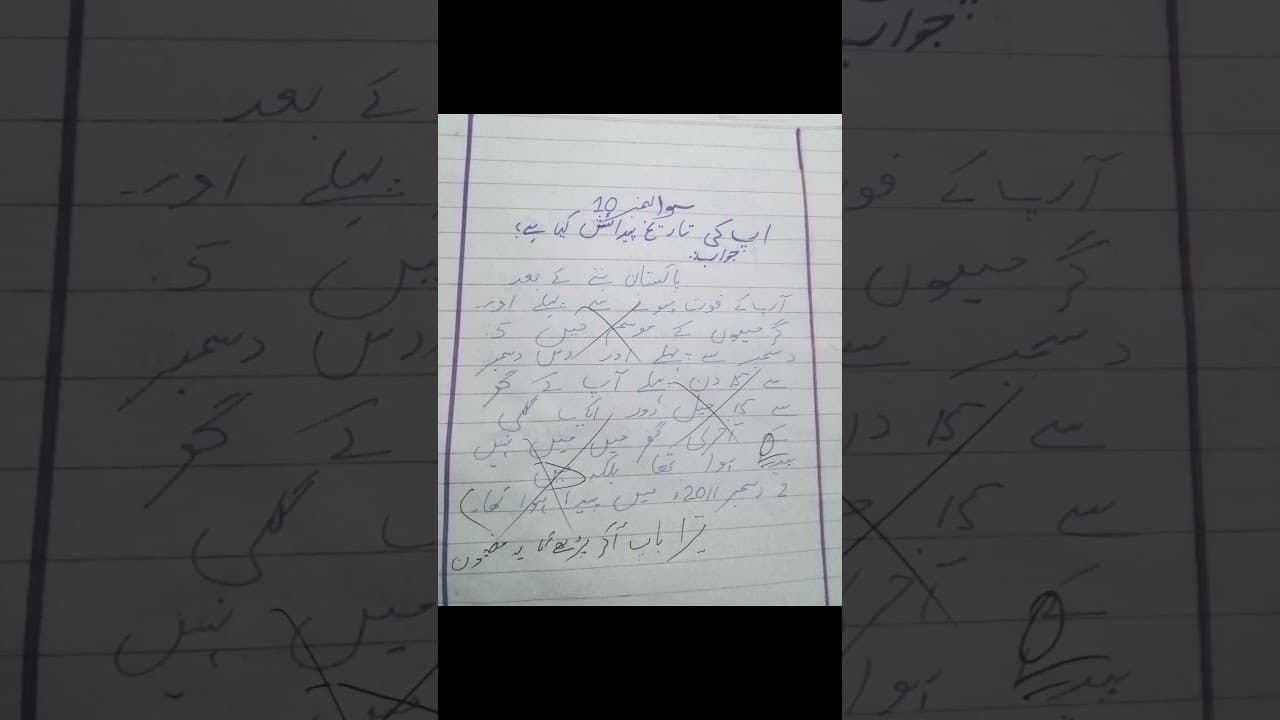 سوالنمبر 10
اپ کی تاریخ پیدائش کیا ہے؟
جواب:
پاکستان بننے کے بعد
آپکے فوت ہونے سے پہلے اور
گرمیوں کے موسم میں 5
دسمبر سے پہلے اور دس دسمبر
سے 15 دن پہلے آپ کے گھر
سے 15 میل دور ایک گلی
کے آخری گھر میں میں نہیں
پیدا ہوا تھا بلکہ میں
2 دسمبر 2011ء میں پیدا ہوا تھا۔
تیرا باپ آکر پڑھے گا یہ مضمون